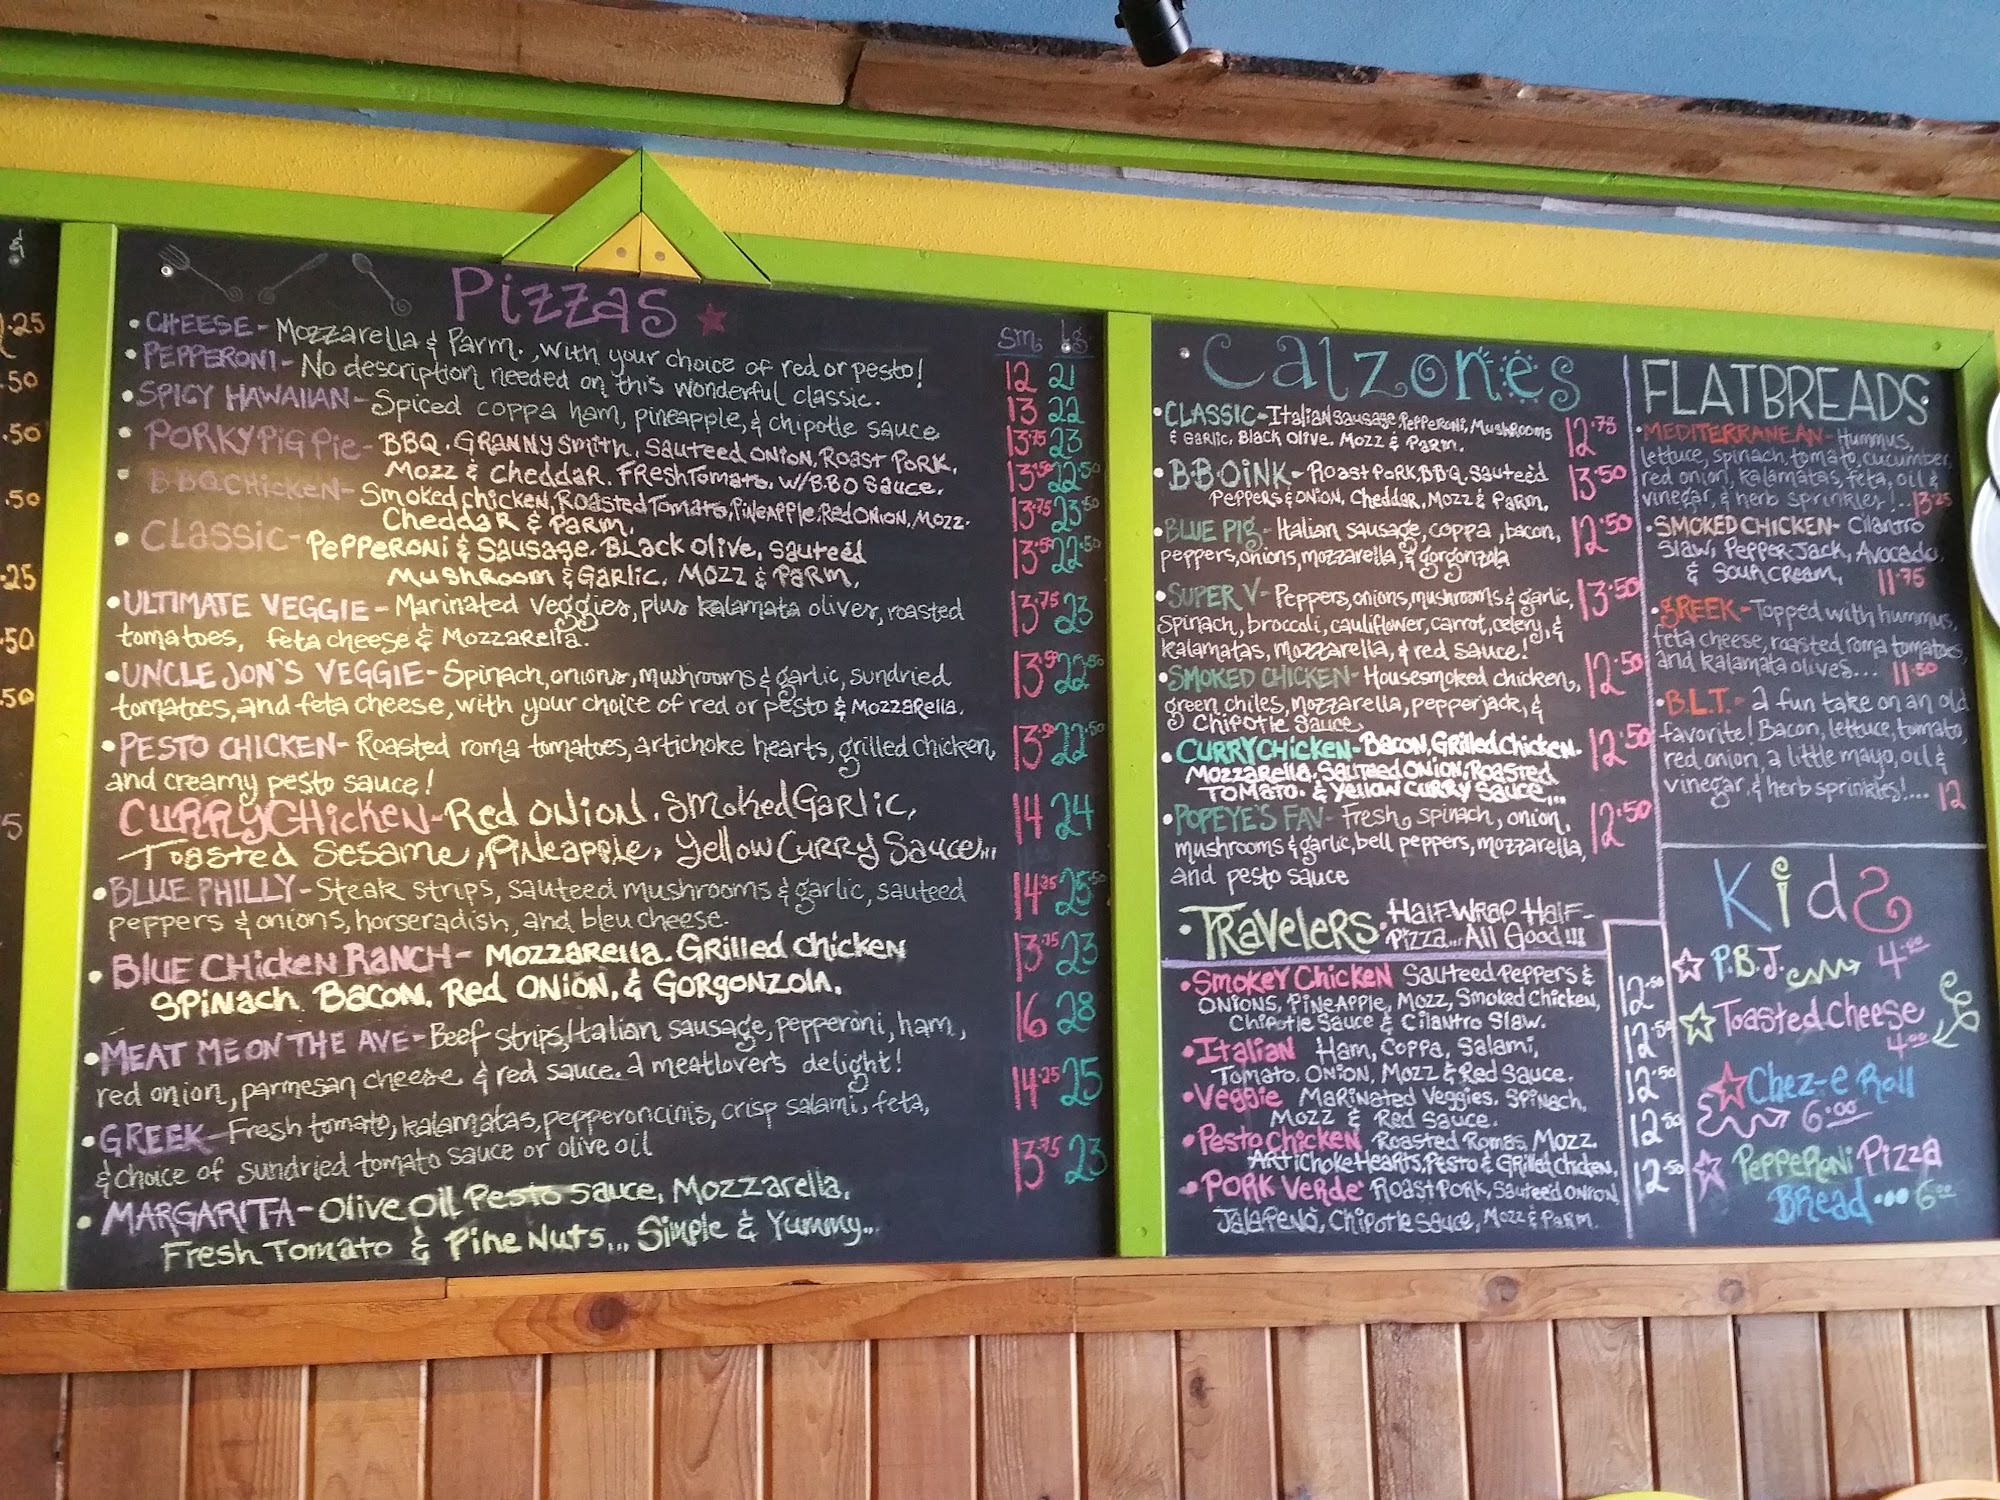 &
.25
.50
.50
.50
.25
.50
.50
5
Pizzas
sm. lg.
• CHEESE - Mozzarella & Parm., with your choice of red or pesto! 12 21
• PEPPERONI - No description needed on this wonderful classic. 13 22
• SPICY HAWAIIAN - Spiced coppa ham, pineapple, & chipotle sauce 13.75 23
• PORKY PIG PIE - BBQ. GRANNY SMITH, SAUTEED ONION, ROAST PORK, 13.50 22.50
MOZZ & CHEDDAR. FRESH TOMATO, W/B.BQ SAUCE.
• B.BQ CHICKEN - SMOKED CHICKEN, ROASTED TOMATO, PINEAPPLE, RED ONION, MOZZ. 13.75 23.50
CHEDDAR & PARM.
• CLASSIC - PEPPERONI & SAUSAGE. BLACK OLIVE, SAUTEED 13.50 22.50
MUSHROOM & GARLIC. MOZZ & PARM.
• ULTIMATE VEGGIE - Marinated Veggies, plus kalamata olives, roasted 13.75 23
tomatoes, feta cheese & MOZZARELLA.
• UNCLE JON'S VEGGIE - Spinach, onions, mushrooms & garlic, sundried 13.50 22.50
tomatoes, and feta cheese, with your choice of red or pesto & MOZZARELLA.
• PESTO CHICKEN - Roasted roma tomatoes, artichoke hearts, grilled chicken, 13.50 22.50
and creamy pesto sauce!
CURRY CHICKEN - RED ONION, SMOKED GARLIC, 14 24
TOASTED SESAME, PINEAPPLE, YELLOW CURRY SAUCE...
• BLUE PHILLY - Steak strips, sauteed mushrooms & garlic, sauteed 14.25 25.50
peppers & onions, horseradish, and bleu cheese.
• BLUE CHICKEN RANCH - MOZZARELLA. GRILLED CHICKEN 13.75 23
SPINACH. BACON, RED ONION, & GORGONZOLA.
• MEAT ME ON THE AVE - Beef strips, Italian sausage, pepperoni, ham, 16 28
red onion, parmesan cheese & red sauce. a meatlover's delight!
• GREEK - Fresh tomato, kalamatas, pepperoncinis, crisp salami, feta, 14.25 25
& choice of sundried tomato sauce or olive oil
• MARGARITA - OLIVE OIL PESTO SAUCE, MOZZARELLA. 13.75 23
FRESH TOMATO & PINE NUTS... SIMPLE & YUMMY...
Calzones
• CLASSIC - ITALIAN SAUSAGE, PEPPERONI, MUSHROOMS 12.75
& GARLIC, BLACK OLIVE. MOZZ & PARM.
• B.B OINK - ROAST PORK, BBQ. SAUTEED 13.50
PEPPERS & ONION, CHEDDAR, MOZZ & PARM.
• BLUE PIG - Italian sausage, coppa, bacon, 12.50
peppers, onions, mozzarella, & gorgonzola
• SUPER V - Peppers, onions, mushrooms & garlic, 13.50
spinach, broccoli, cauliflower, carrot, celery, &
kalamatas, mozzarella, & red sauce!
• SMOKED CHICKEN - Housesmoked chicken, 12.50
green chiles, mozzarella, pepperjack, &
CHIPOTLE SAUCE.
• CURRY CHICKEN - BACON, GRILLED CHICKEN. 12.50
MOZZARELLA, SAUTEED ONION, ROASTED
TOMATO. & YELLOW CURRY SAUCE...
• POPEYE'S FAV - Fresh spinach, onion, 12.50
mushrooms & garlic, bell peppers, mozzarella,
and pesto sauce
• TRAVELERS. HALF-WRAP HALF-
PIZZA... ALL GOOD!!!
• SMOKEY CHICKEN SAUTEED PEPPERS & 12.50
ONIONS, PINEAPPLE, MOZZ, SMOKED CHICKEN,
CHIPOTLE SAUCE & CILANTRO SLAW.
• ITALIAN HAM, COPPA, SALAMI, 12.50
TOMATO. ONION, MOZZ & RED SAUCE.
• VEGGIE MARINATED VEGGIES. SPINACH, 12.50
MOZZ & RED SAUCE.
• PESTO CHICKEN ROASTED ROMAS, MOZZ. 12.50
ARTICHOKE HEARTS, PESTO & GRILLED CHICKEN,
• PORK VERDE' ROAST PORK, SAUTEED ONION, 12.50
JALAPENO, CHIPOTLE SAUCE, MOZZ & PARM.
FLATBREADS
• MEDITERRANEAN - Hummus,
lettuce, spinach, tomato, cucumber,
red onion, kalamatas, feta, oil &
vinegar, & herb sprinkles!... 13.25
• SMOKED CHICKEN - CILANTRO
SLAW, PEPPER-JACK, AVOCADO,
& SOUR CREAM, 11.75
• GREEK - Topped with hummus,
feta cheese, roasted roma tomatoes,
and kalamata olives... 11.50
• B.L.T. - a fun take on an old
favorite! Bacon, lettuce, tomato,
red onion, a little mayo, oil &
vinegar, & herb sprinkles!.... 12
KidS
P.B.J. 4.00
TOASTED CHEESE
4.00
CHEZ-E ROLL
6.00
PEPPERONI PIZZA
BREAD ... 6.00